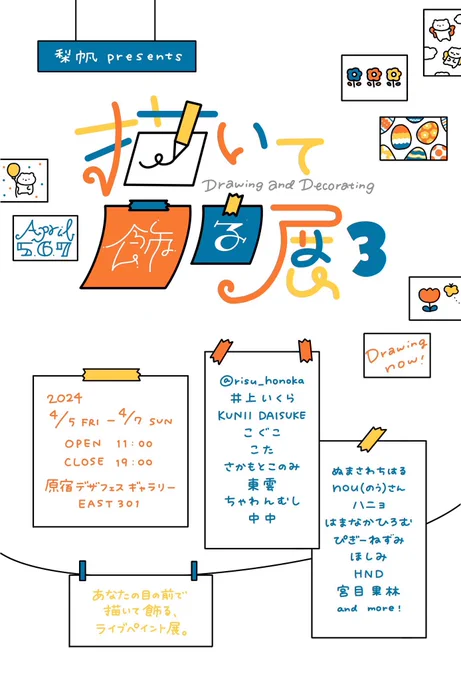 梨帆 presents
描いて
Drawing and Decorating
飾る展3
April
5.6.7
Drawing
now!
2024
4/5 FRI － 4/7 SUN
OPEN 11:00
CLOSE 19:00
原宿デザフェスギャラリー
EAST301
@risu_honoka
井上いくら
KUNII DAISUKE
こぐこ
こた
さかもとこのみ
東雲
ちゃわんむし
中中
ぬまさわちはる
nou(のう)さん
ハニョ
はまなかひろむ
ぴぎーねずみ
ほしみ
HND
宮目果林
and more!
あなたの目の前で
描いて飾る、
ライブペイント展。